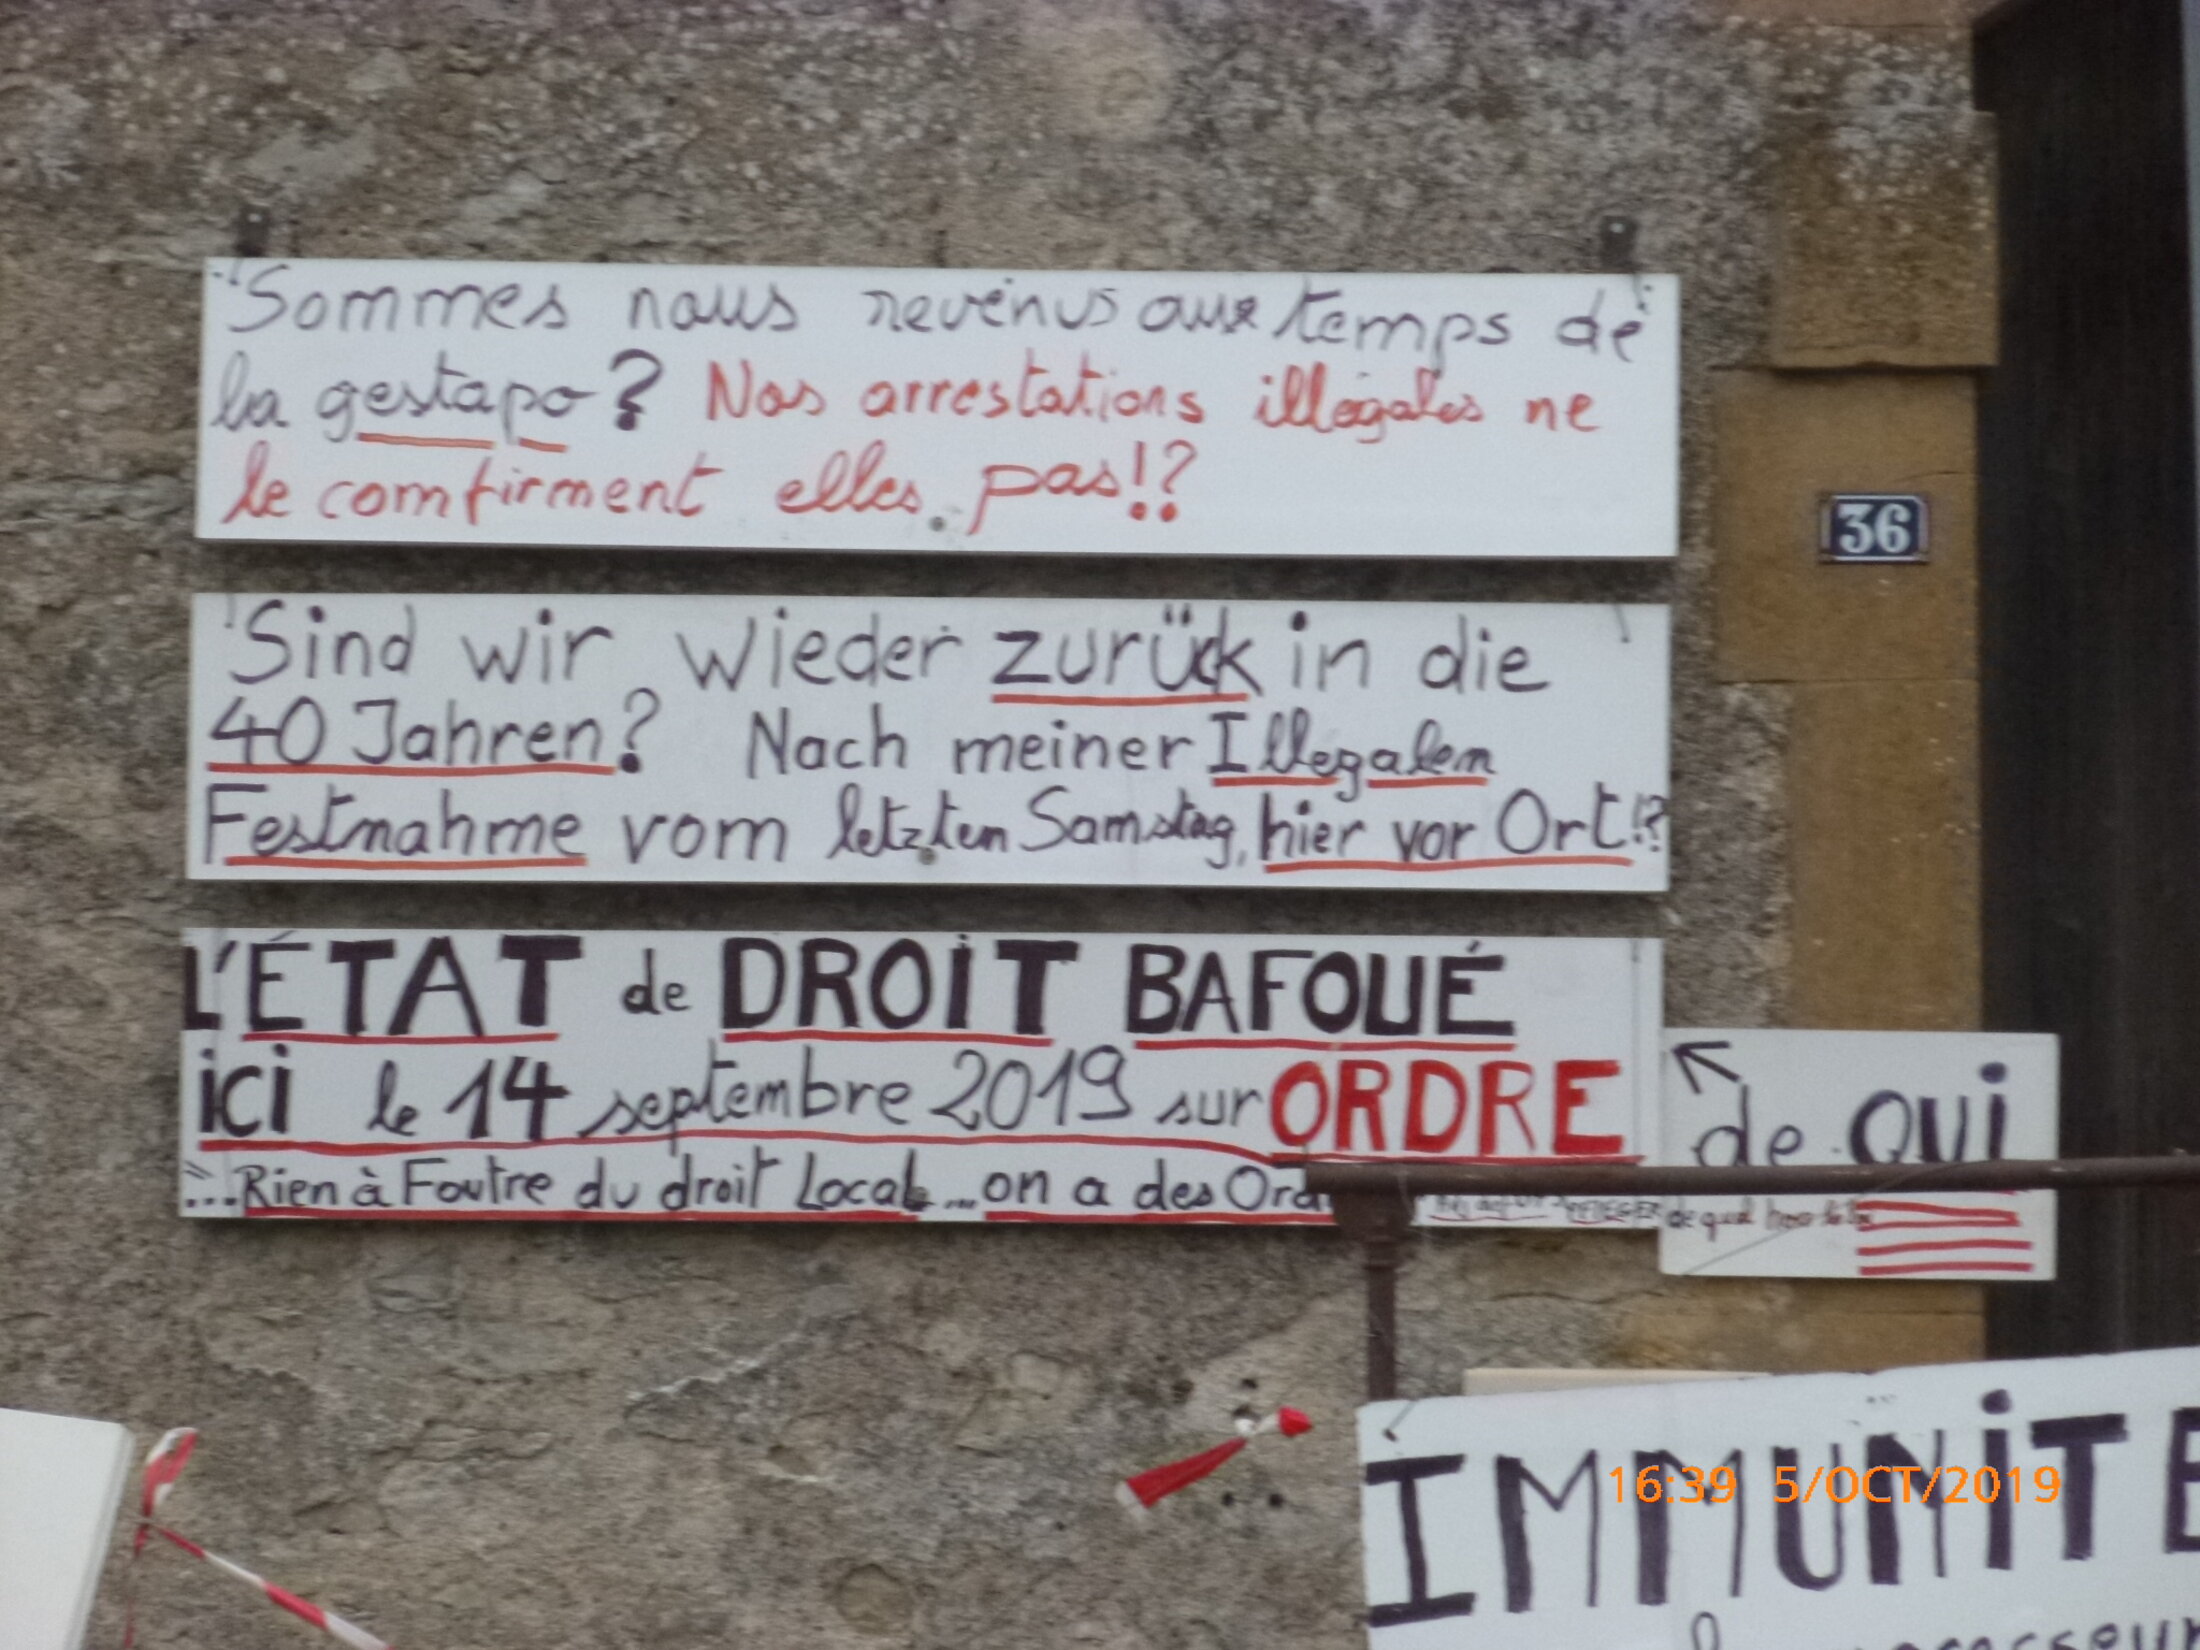 Sommes nous revenus aux temps de
la gestapo? Nos arrestations illégales ne
le comfirment elles pas!?
36
Sind wir wieder zurück in die
40 Jahren? Nach meiner Illegalen
Festnahme vom letzten Samstag, hier vor Ort!?
L'ÉTAT de DROIT BAFOUÉ
ici le 14 septembre 2019 sur ORDRE
de QUI
...Rien à Foutre du droit Local...on a des
de quel
IMMUNITE
16:39 5/OCT/2019